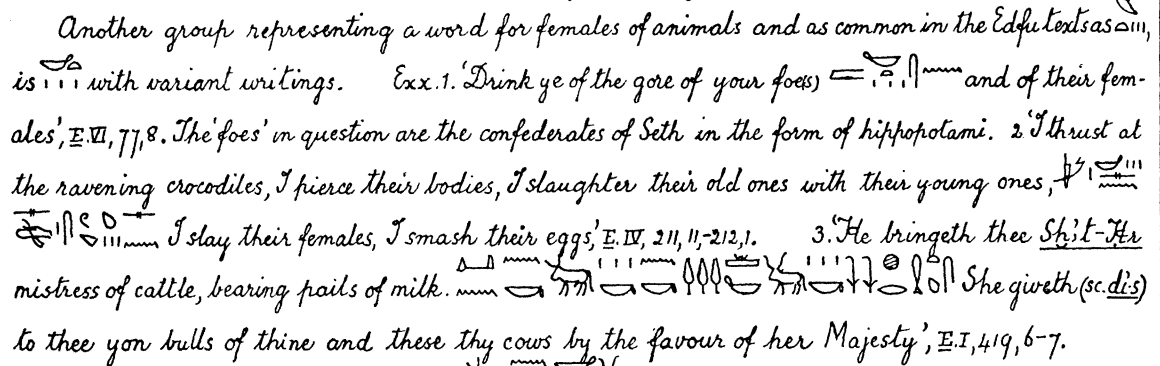 Another group representing a word for females of animals and as common in the Edfu texts as
is with variant writings. Exx. 1. 'Drink ye of the gore of your foe(s) and of their fem-
ales', E. VI, 77, 8. The 'foes' in question are the confederates of Seth in the form of hippopotami. 2. 'I thrust at
the ravening crocodiles, I pierce their bodies, I slaughter their old ones with their young ones,
I slay their females, I smash their eggs', E. IV, 211, 11,-212, 1. 3. 'He bringeth thee Sḫ3t-Ḥr
mistress of cattle, bearing pails of milk. She giveth (sc. di·s)
to thee yon bulls of thine and these thy cows by the favour of her Majesty', E. I, 419, 6-7.